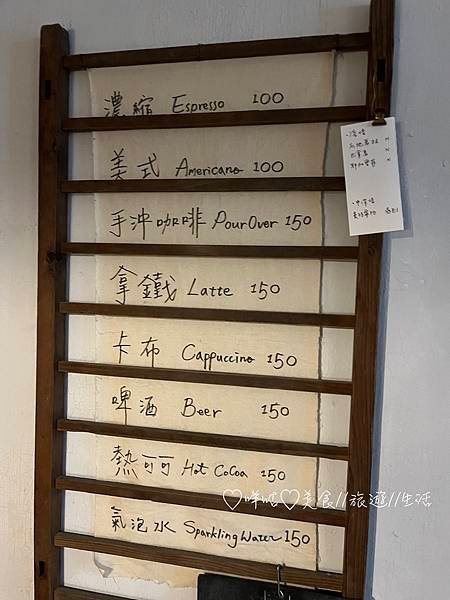 濃縮 Espresso 100
美式 Americano 100
手沖咖啡 PourOver 150
拿鐵 Latte 150
卡布 Cappuccino 150
啤酒 Beer 150
熱可可 Hot CoCoa 150
氣泡水 Sparkling Water 150
-淺焙
-中深焙
♡咩咕♡美食//旅遊//生活